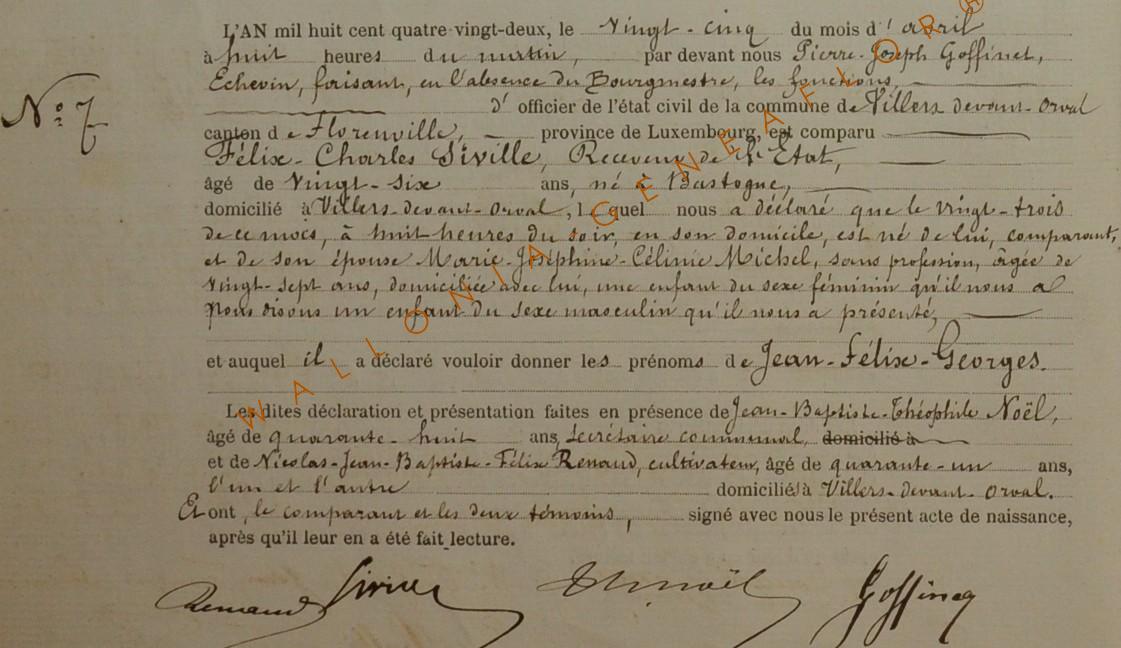 L'AN mil huit cent quatre-vingt-deux, le vingt-cinq du mois d'avril
à huit heures du matin, par devant nous Pierre-Joseph Goffinet,
Echevin, faisant, en l'absence du Bourgmestre, les fonctions,
N° 7
d'officier de l'état civil de la commune de Villers devant-Orval
canton de Florenville, province de Luxembourg, est comparu
Félix-Charles Siville, Receveur de l'Etat,
âgé de vingt-six ans, né à Bastogne,
domicilié à Villers-devant-Orval, lequel nous a déclaré que le vingt-trois
de ce mois, à huit heures du soir, en son domicile, est né de lui, comparant,
et de son épouse Marie-Joséphine-Célinie Michel, sans profession, âgée de
vingt-sept ans, domiciliée avec lui, une enfant du sexe féminin qu'il nous a
nous disons un enfant du sexe masculin qu'il nous a présenté,
et auquel il a déclaré vouloir donner les prénoms de Jean-Félix-Georges.
Les dites déclaration et présentation faites en présence de Jean-Baptiste-Théophile Noël,
âgé de quarante-huit ans, secrétaire communal, domicilié à
et de Nicolas-Jean-Baptiste-Félix Renaud, cultivateur, âgé de quarante-un ans,
l'un et l'autre domiciliés à Villers-devant-Orval.
Et ont, le comparant et les deux témoins, signé avec nous le présent acte de naissance,
après qu'il leur en a été fait lecture.
Renaud Siville Noël Goffinet
WALLONIA GENEALOR